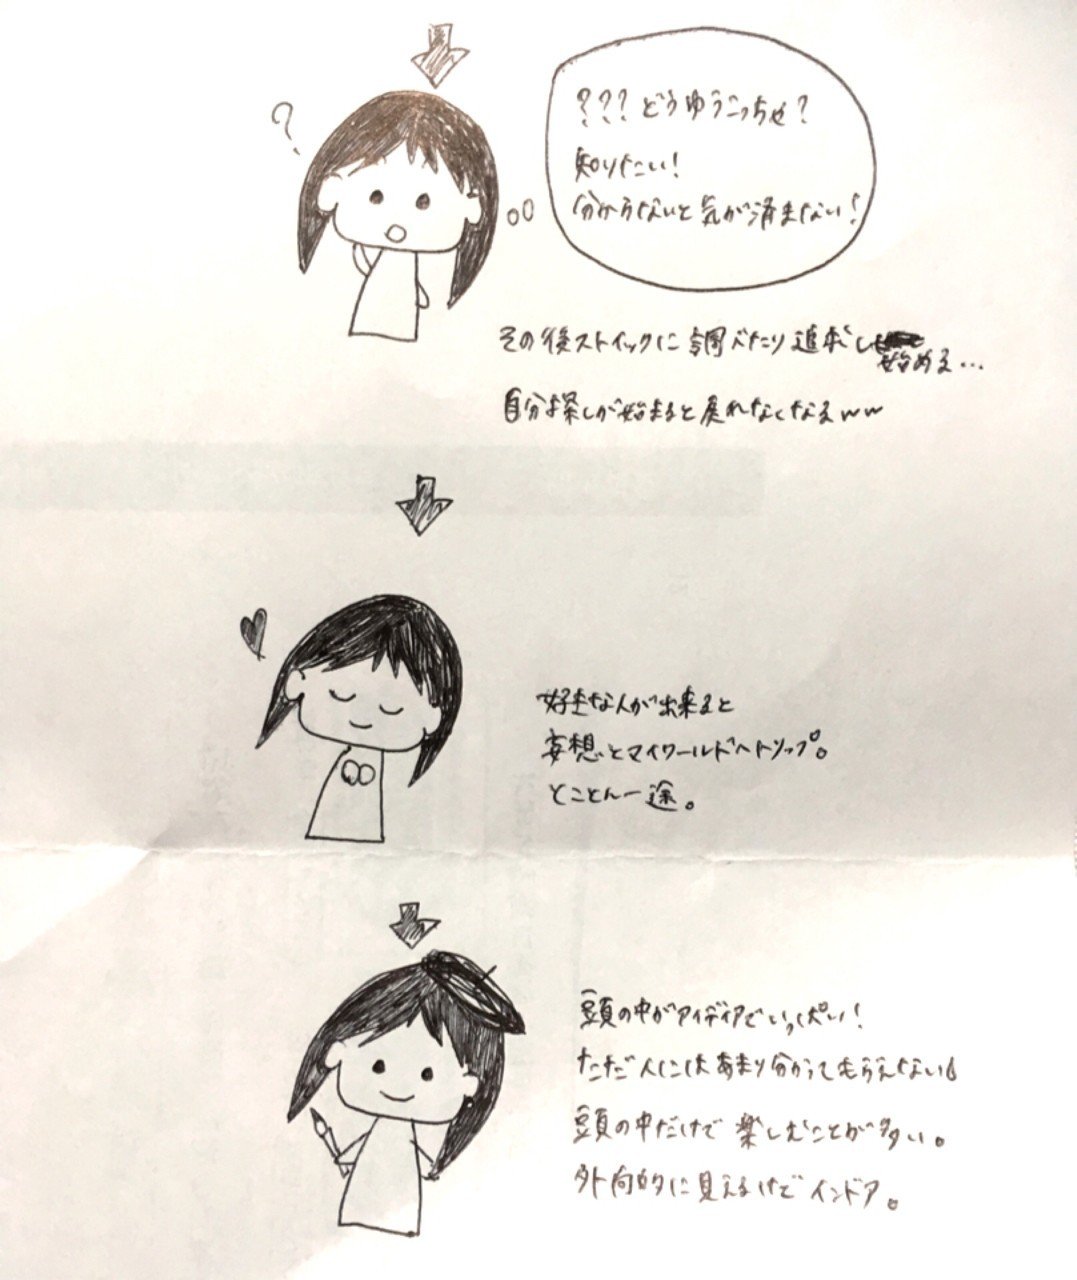 ?
???どうゆうこっちゃ?
知りたい!
分からないと気が済まない!
その後ストイックに調べたり追求し
始める…
自分探しが始まると戻れなくなるww
好きな人が出来ると
妄想とマイワールドへトリップ。
とことん一途。
頭の中がアイディアでいっぱい!
ただ人にはあまり分かってもらえない
頭の中だけで楽しむことが多い。
外向的に見えるけどインドア。